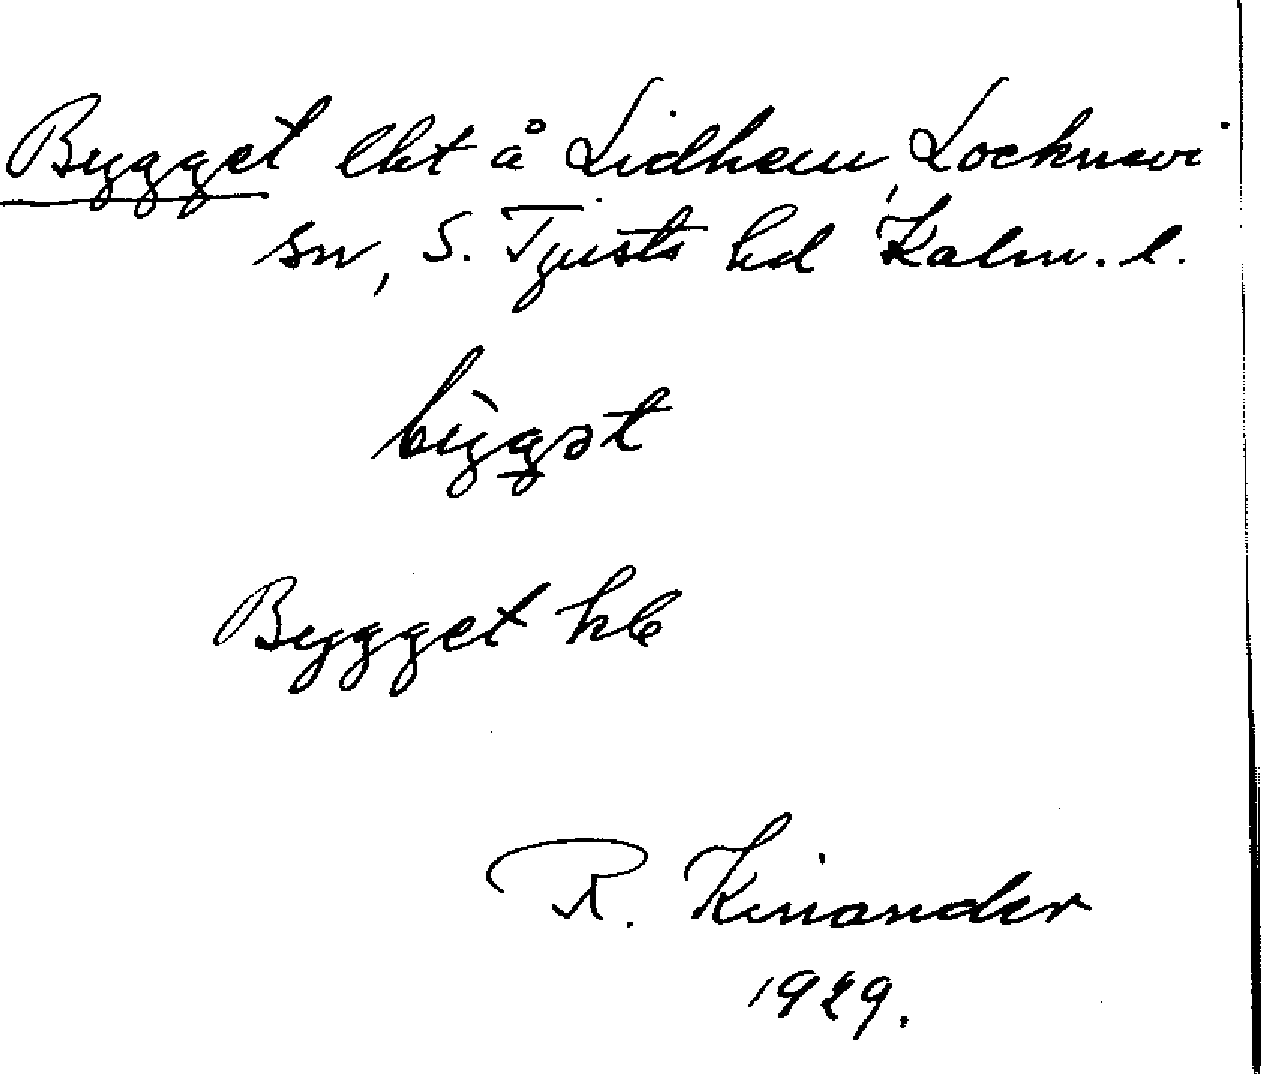 Bygget lht å Lidhem, Locknevi
sn, S. Tjusts hd Kalm. l.
bỳggət
Bygget hb
R. Kinander
1929.